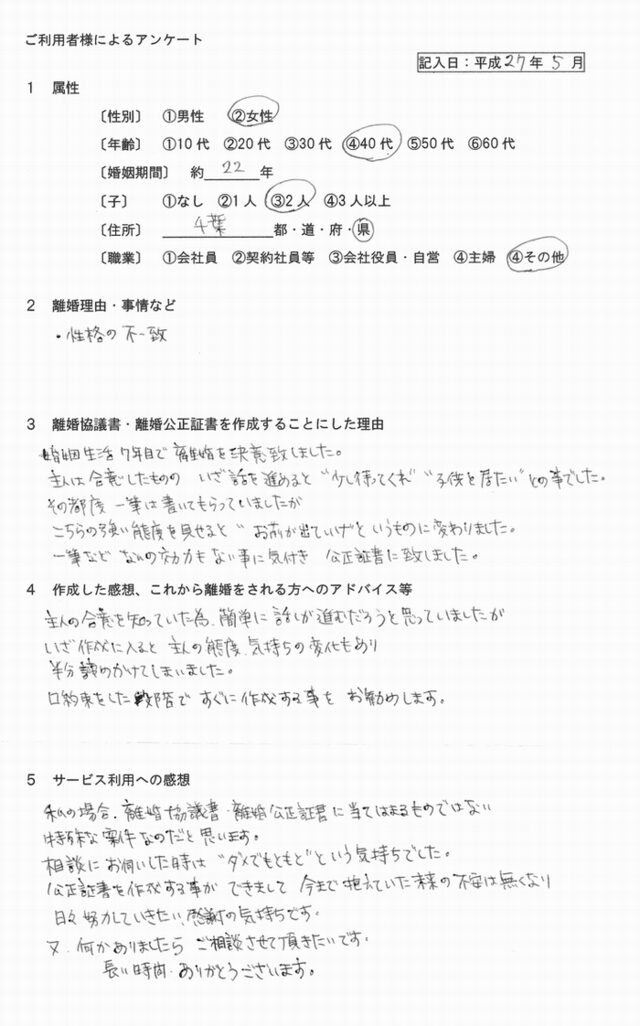 ご利用者様によるアンケート
記入日：平成27年 5月
1 属性
〔性別〕 ①男性 ②女性
〔年齢〕 ①10代 ②20代 ③30代 ④40代 ⑤50代 ⑥60代
〔婚姻期間〕 約 22 年
〔子〕 ①なし ②1人 ③2人 ④3人以上
〔住所〕 千葉 都・道・府・県
〔職業〕 ①会社員 ②契約社員等 ③会社役員・自営 ④主婦 ④その他
2 離婚理由・事情など
・性格の不一致
3 離婚協議書・離婚公正証書を作成することにした理由
婚姻生活7年目で離婚を決意致しました。
主人は合意したものの いざ話を進めると"少し待ってくれ" "子供と居たい"との事でした。
その都度 一筆は書いてもらっていましたが
こちらの強い態度を見せると" お前が出ていけ"というものに変わりました。
一筆など なんの効力もない事に気付き 公正証書に致しました。
4 作成した感想、これから離婚をされる方へのアドバイス等
主人の合意を知っていた為、簡単に話しが進むだろうと思っていましたが
いざ作成に入ると 主人の態度、気持ちの変化もあり
半分諦めかけてしまいました。
口約束をした段階で すぐに作成する事を お勧めします。
5 サービス利用への感想
私の場合、離婚協議書・離婚公正証書に当てはまるものではない
特殊な案件なのだと思います。
相談にお伺いした時は"ダメでもともと"という気持ちでした。
公正証書を作成する事が できまして 今まで抱えていた未来の不安は無くなり
日々努力していきたい、感謝の気持ちです。
又、何かありましたら ご相談させて頂きたいです。
長い時間、ありがとうございます。